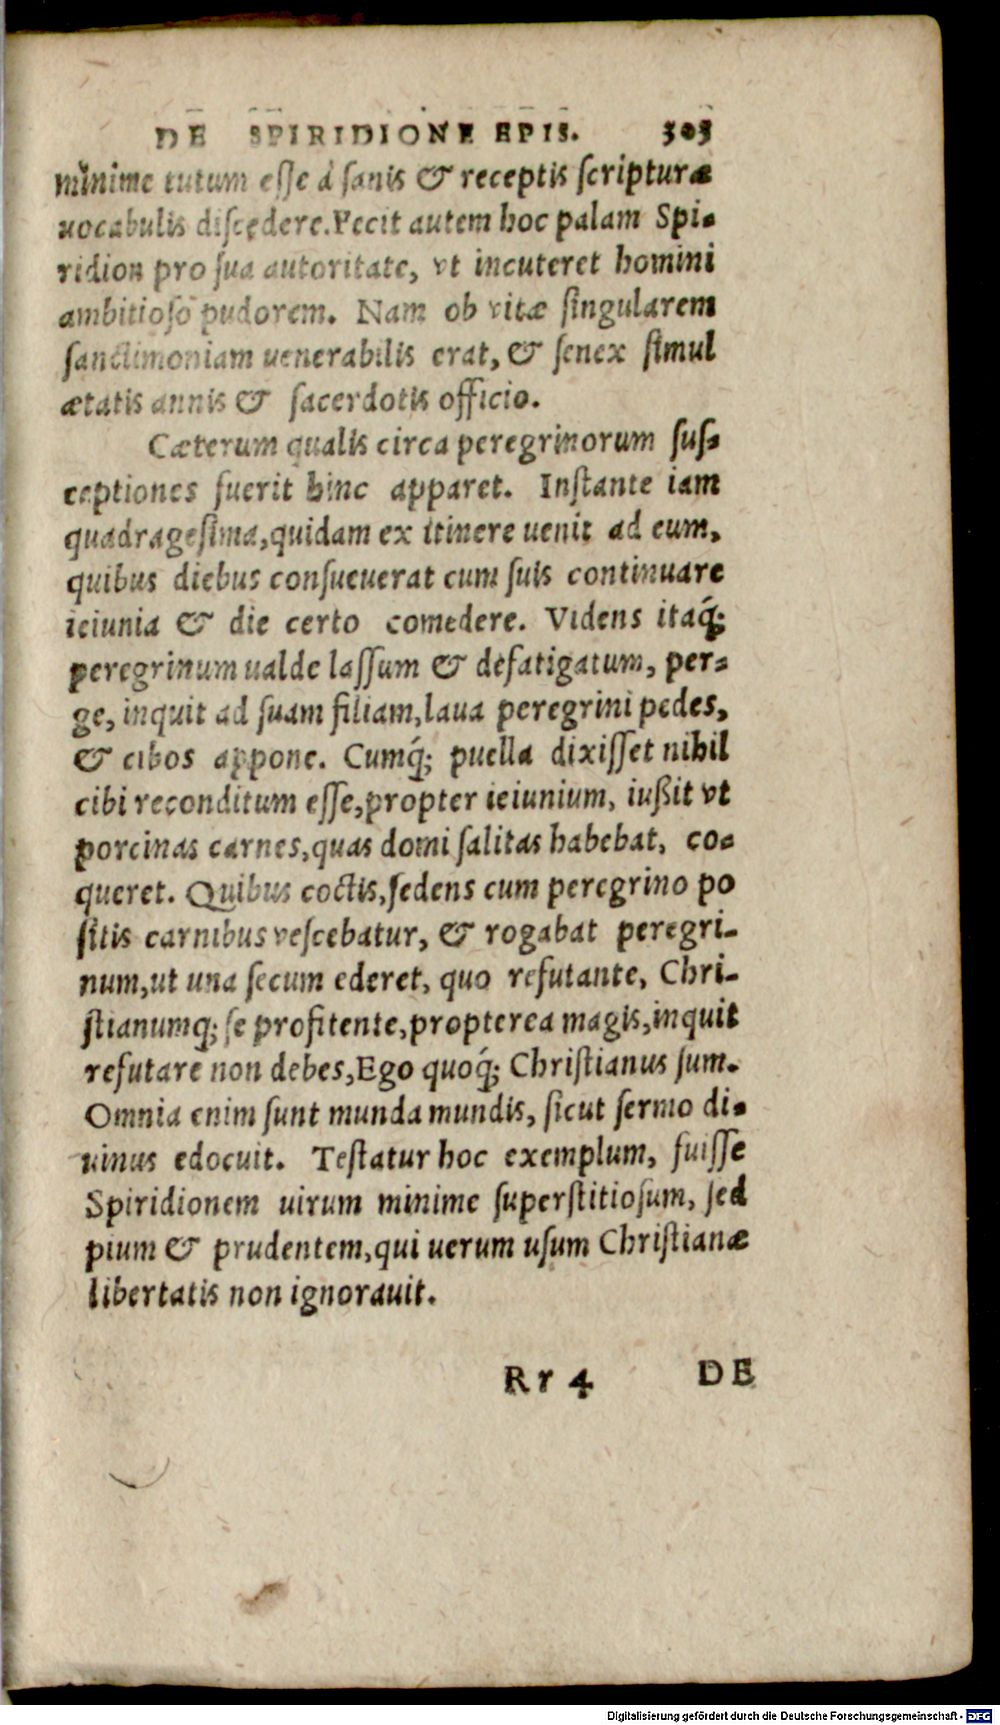 DE SPIRIDIONE EPIS. 303
minime tutum esse à sanis & receptis scripturæ
uocabulis discedere. Fecit autem hoc palam Spi-
ridion pro sua autoritate, vt incuteret homini
ambitioso pudorem. Nam ob vitæ singularem
sanctimoniam uenerabilis erat, & senex simul
ætatis annis & sacerdotis officio.
Cæterum qualis circa peregrinorum sus-
ceptiones fuerit hinc apparet. Instante iam
quadragesima, quidam ex itinere uenit ad eum,
quibus diebus consueuerat cum suis continuare
ieiunia & die certo comedere. Videns itaq́;
peregrinum ualde lassum & defatigatum, per-
ge, inquit ad suam filiam, laua peregrini pedes,
& cibos appone. Cumq́; puella dixisset nihil
cibi reconditum esse, propter ieiunium, iußit vt
porcinas carnes, quas domi salitas habebat, co-
queret. Quibus coctis, sedens cum peregrino po
sitis carnibus vescebatur, & rogabat peregri-
num, ut una secum ederet, quo refutante, Chri-
stianumq; se profitente, propterea magis, inquit
refutare non debes, Ego quoq́; Christianus sum.
Omnia enim sunt munda mundis, sicut sermo di-
uinus edocuit. Testatur hoc exemplum, fuisse
Spiridionem uirum minime superstitiosum, sed
pium & prudentem, qui uerum usum Christianæ
libertatis non ignorauit.
Rr 4 DE
Digitalisierung gefördert durch die Deutsche Forschungsgemeinschaft - DFG